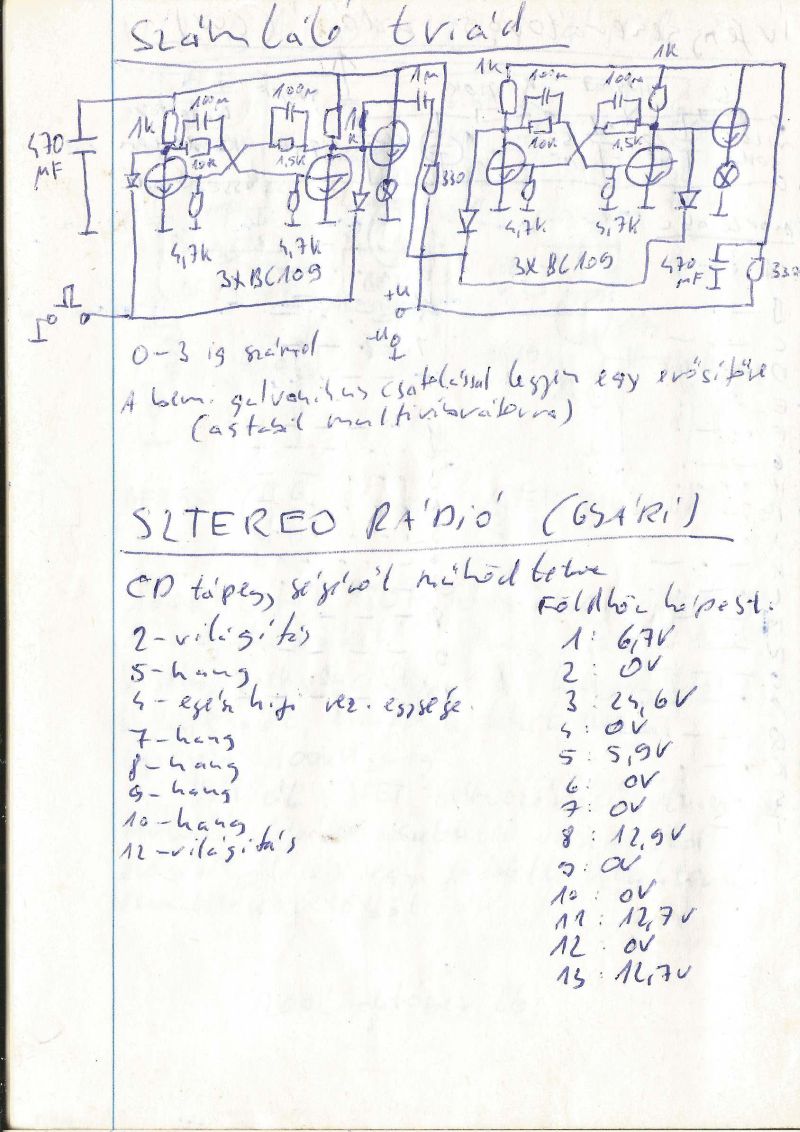 Számláló triád
1K
100m
100m
1K
1m
1K
100m
100m
1K
470 µF
10K
1,5K
330
10K
1,5K
4,7K
4,7K
4,7K
4,7K
3xBC109
3xBC109
470 µF
330
+U
-U
0-3 ig számol
A bem. galvanikus csatolással legyen egy erősítőre
(astabil multivibrátorra)
SZTEREO RÁDIÓ (GYÁRI)
CD tápegységéről működtetve
Földhöz képest:
2-világítás
5-hang
4-egész hifi vez. egysége.
7-hang
8-hang
9-hang
10-hang
12-világítás
1: 6,7V
2: 0V
3: 24,6V
4: 0V
5: 5,9V
6: 0V
7: 0V
8: 12,9V
9: 0V
10: 0V
11: 12,7V
12: 0V
13: 12,7V